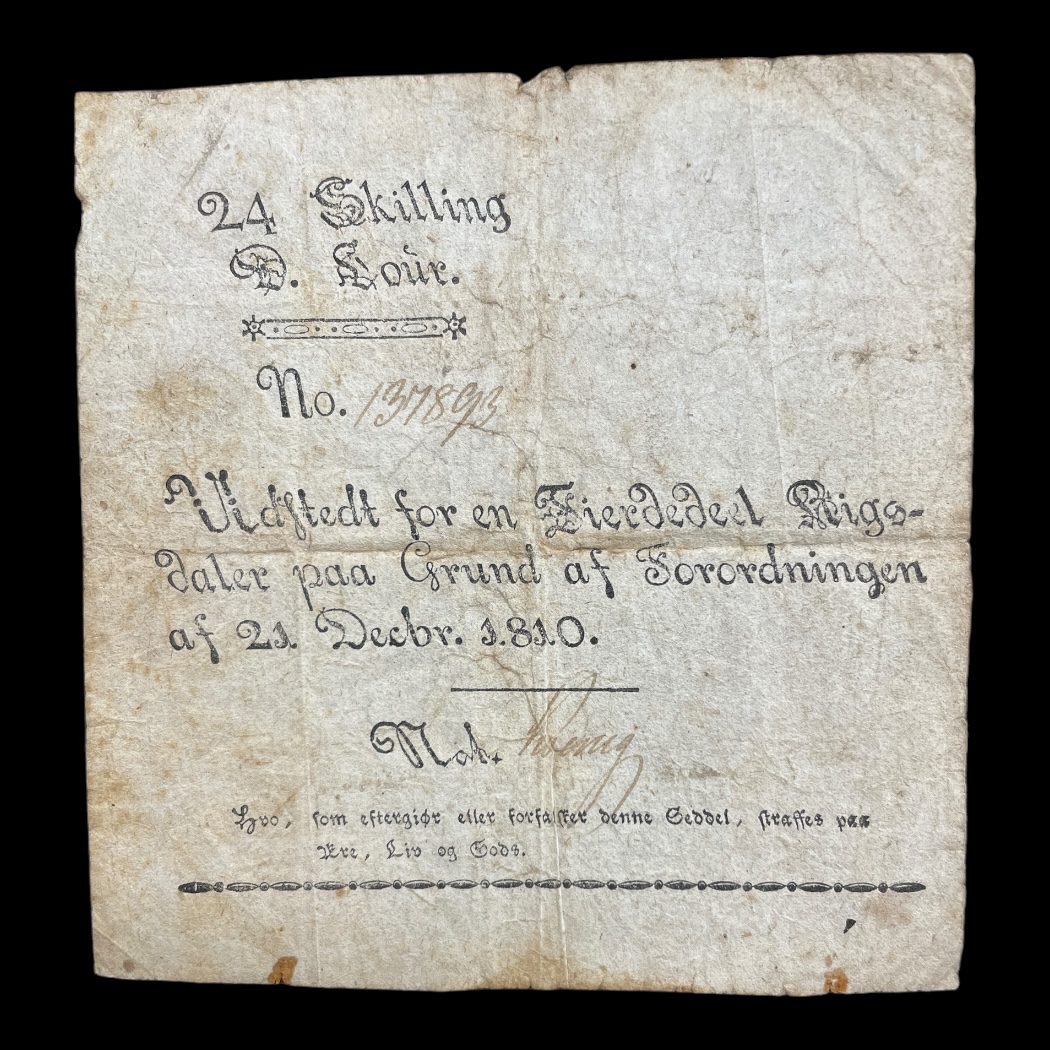 24 Skilling
D. Cour.
No. 137893
Udstedt for en Fierdedeel Rigs-
daler paa Grund af Forordningen
af 21 Decbr. 1810.
Not.
Hvo, som eftergiør eller forfalsker denne Seddel, straffes paa
Ære, Liv og Gods.